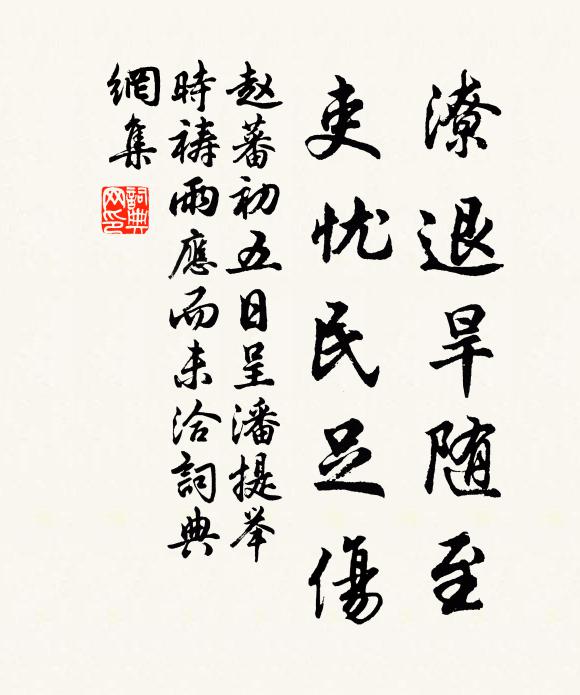 潦退旱随至
吏忧民足傷
赵蕃初五日呈潘提举
時禱雨應而未洽詞典
網集
詞典
网印